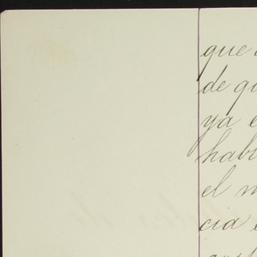 que
de qu
ya e
habi
el m
cia